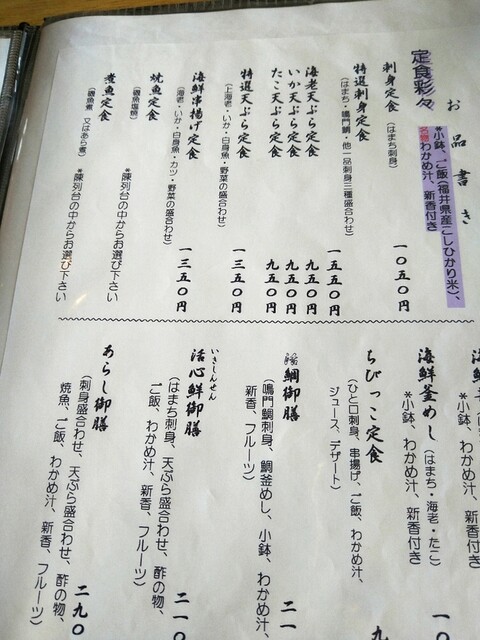 お品書き
定食彩々
*小鉢、ご飯(福井県産こしひかり米)、
名物わかめ汁、新香付き
刺身定食(はまち刺身) 一〇五〇円
特選刺身定食 一五五〇円
(はまち・鳴門鯛・他一品刺身三種盛合わせ)
海老天ぷら定食 九五〇円
いか天ぷら定食 九五〇円
たこ天ぷら定食 九五〇円
特選天ぷら定食 一三五〇円
(上海老・いか・白身魚・野菜の盛合わせ)
海鮮串揚げ定食 一三五〇円
(海老・いか・白身魚・カツ・野菜の盛合わせ)
焼魚定食 *陳列台の中からお選び下さい
(磯魚塩焼)
煮魚定食 *陳列台の中からお選び下さい
(磯魚煮 又はあら煮)
海鮮
*小鉢、わかめ汁、新香付き
海鮮釜めし(はまち・海老・たこ) 一〇
*小鉢、わかめ汁、新香付き
ちびっこ定食 九
(ひと口刺身、串揚げ、ご飯、わかめ汁、
ジュース、デザート)
鯛御膳 二一
(鳴門鯛刺身、鯛釜めし、小鉢、わかめ汁、
新香、フルーツ)
いきしんせん
活心鮮御膳 二一〇
(はまち刺身、天ぷら盛合わせ、酢の物、
ご飯、わかめ汁、新香、フルーツ)
あらし御膳 二九〇
(刺身盛合わせ、天ぷら盛合わせ、酢の物、
焼魚、ご飯、わかめ汁、新香、フルーツ)